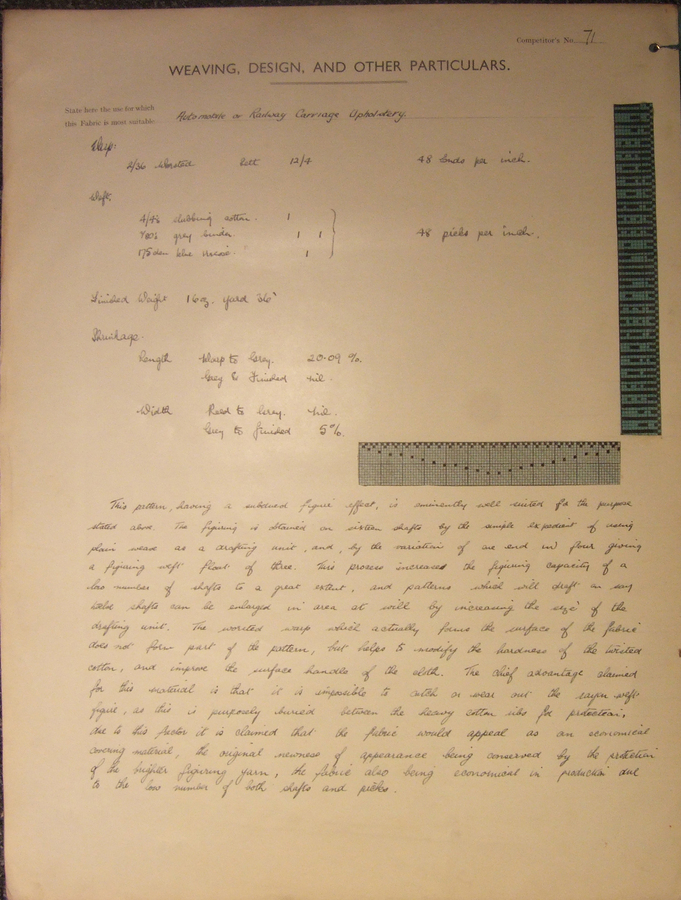 Competitor's No. 71
WEAVING, DESIGN, AND OTHER PARTICULARS.
State here the use for which
this Fabric is most suitable
Automobile or Railway Carriage Upholstery.
Warp:
2/36 Worsted Sett 12/4 48 Ends per inch.
Weft,
4/48 slubbing cotton. 1
grey binder. 1 1
175 den blue 1
48 picks per inch.
Finished Weight 16 oz. yard 56"
Shrinkage.
Length Warp to Grey. 20.09 %.
Grey to Finished nil.
Width Reed to Grey. nil.
Grey to finished 5%.
This pattern, having a subdued figure effect, is eminently well suited for the purpose
stated above. The figuring is obtained on sixteen shafts by the simple expedient of using
plain weave as a drafting unit, and, by the variation of one end in four giving
a figuring weft float of three. This process increases the figuring capacity of a
low number of shafts to a great extent, and patterns which will draft on say
twelve shafts can be enlarged in area at will by increasing the size of the
drafting unit. The worsted warp which actually forms the surface of the fabric
does not form part of the pattern, but helps to modify the hardness of the twisted
cotton, and improve the surface handle of the cloth. The chief advantage claimed
for this material is that it is impossible to catch or wear out the rayon weft
figure, as this is purposely buried between the heavy cotton ribs for protection,
due to this factor it is claimed that the fabric would appeal as an economical
covering material, the original newness of appearance being conserved by the protection
of the brighter figuring yarn, the fabric also being economical in production due
to the low number of both shafts and picks.